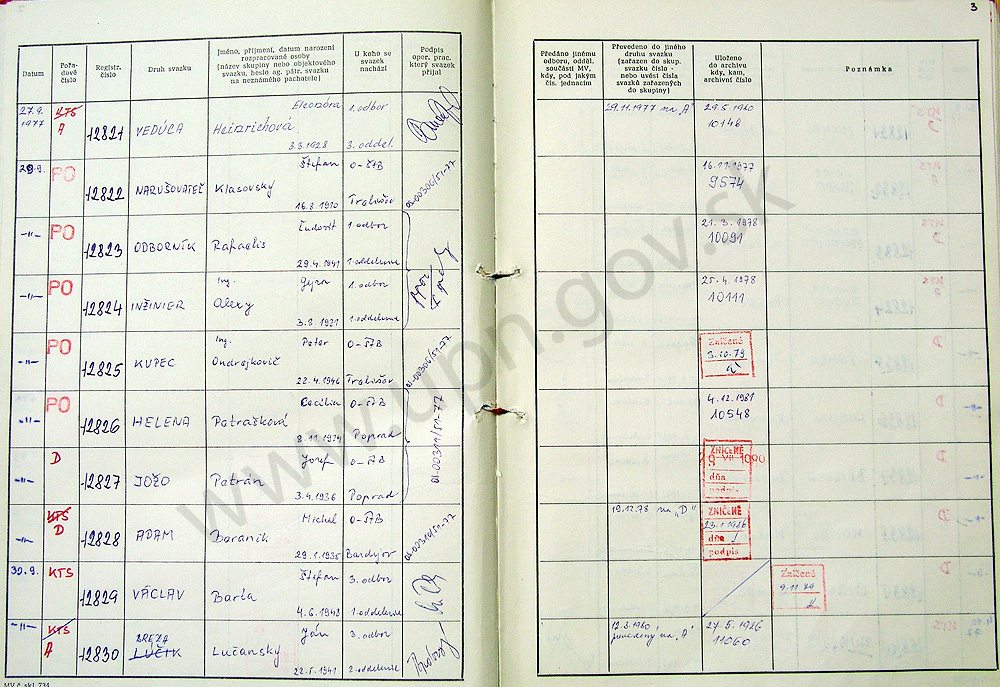 3
Datum
Pořadové číslo
Registr. číslo
Druh svazku
Jméno, příjmení, datum narození rozpracované osoby (název skupiny nebo objektového svazku, heslo ag. pátr. svazku na neznámého pachatele)
U koho se svazek nachází
Podpis oper. prac. který svazek přijal
Předáno jinému odboru, odděl. součásti MV, kdy, pod jakým čís. jednacím
Převedeno do jiného druhu svazku (zařazen do skup. svazku číslo - nebo uvést čísla svazků zařazených do skupiny)
Uloženo do archivu kdy, kam, archivní číslo
Poznámka
27.9. 1977 KTS A 12821 VEDÚCA Heinrichová Eleonóra 3.3.1928 1. odbor 3. oddel. 29.11.1977 na „A" 29.5.1980 10146
29.9. PO 12822 NARUŠOVATEĽ Klasovský Štefan 16.8.1910 O-ŠtB Trebišov 02-00306/51-77 16.11.1977 9574
-"- PO 12823 ODBORNÍK Rafaelis Ľudovít 29.4.1941 1. odbor 1. oddelenie 21.3.1978 10091
-"- PO 12824 INŽINIER Ing. Alexy 1. odbor 1. oddelenie 25.4.1978 10111
-"- PO 12825 KUPEC Ing. Ondrejkovič Peter 22.4.1946 O-ŠtB Trebišov 02-00306/51-77 Zničené 3.10.79
-"- PO 12826 HELENA Petrašková Cecília O-ŠtB Poprad 4.12.1981 10548
-"- D 12827 JOŽO Petran Jozef 3.4.1936 O-ŠtB Poprad 02-00311/51-77 ZNIČENÉ dňa podpis
-"- KTS D 12828 ADAM Baranik Michal 29.1.1935 O-ŠtB Bardejov 02-00310/51-77 19.12.78 na „D" ZNIČENÉ 23.1.1986 dňa podpis
30.9. KTS 12829 VÁCLAV Barta Štefan 4.6.1943 3. odbor 1. oddelenie Zničené 9.11.79
-"- KTS A 12830 BREZA LÚČIK Lučanský Ján 22.5.1941 3. odbor 2. oddelenie 12.3.1980, prevedený na „A" 27.5.1986 11060
www.upn.gov.sk